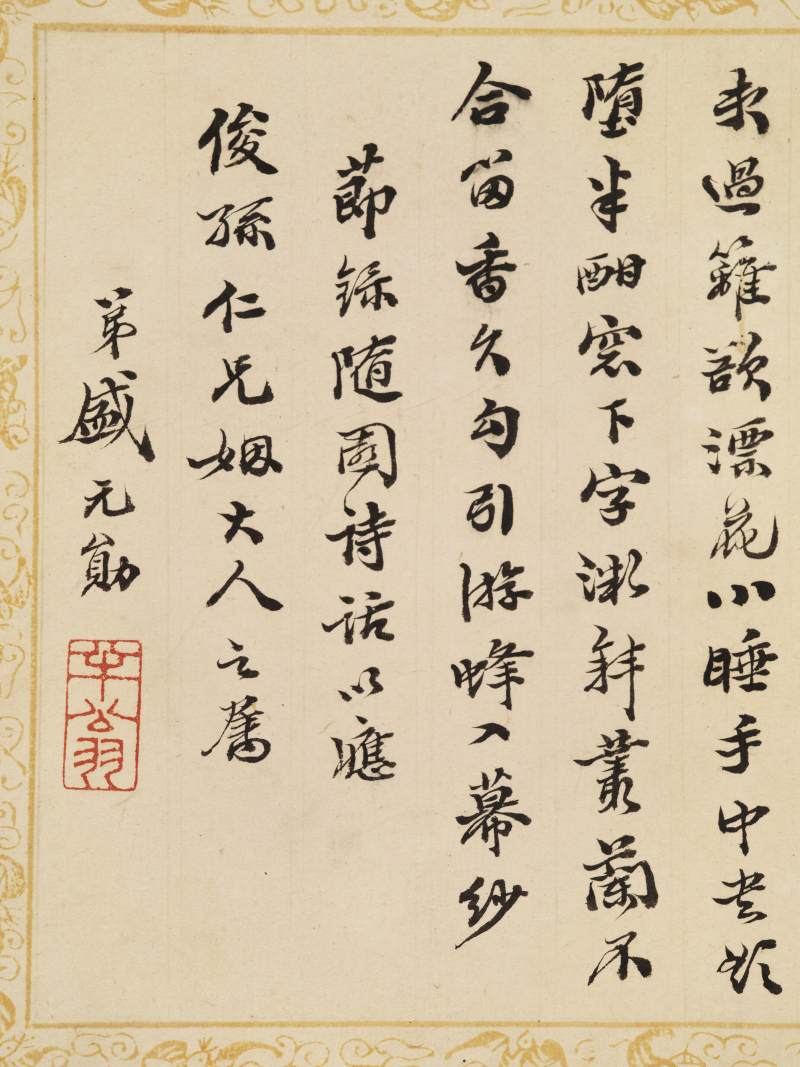 未過籬漂花小睡手中書欲
墮半酣窓下字微斜叢蘭不
合留香久勾引游蜂入幕紗
節錄随園詩話以應
俊孫仁兄姻大人之屬
弟盛元勛
翁